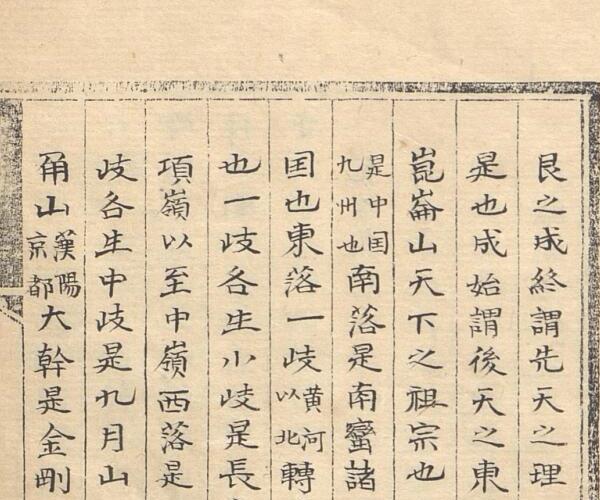 艮之成終謂先天之理
是也成始謂後天之東
崑崙山天下之祖宗也
是中国九州也南落是南蠻諸
国也東落一歧黄河以北轉
也一歧各生小歧是長
項嶺以至中嶺西落是
歧各生中歧是九月山
甬山漢陽京都大幹是金剛